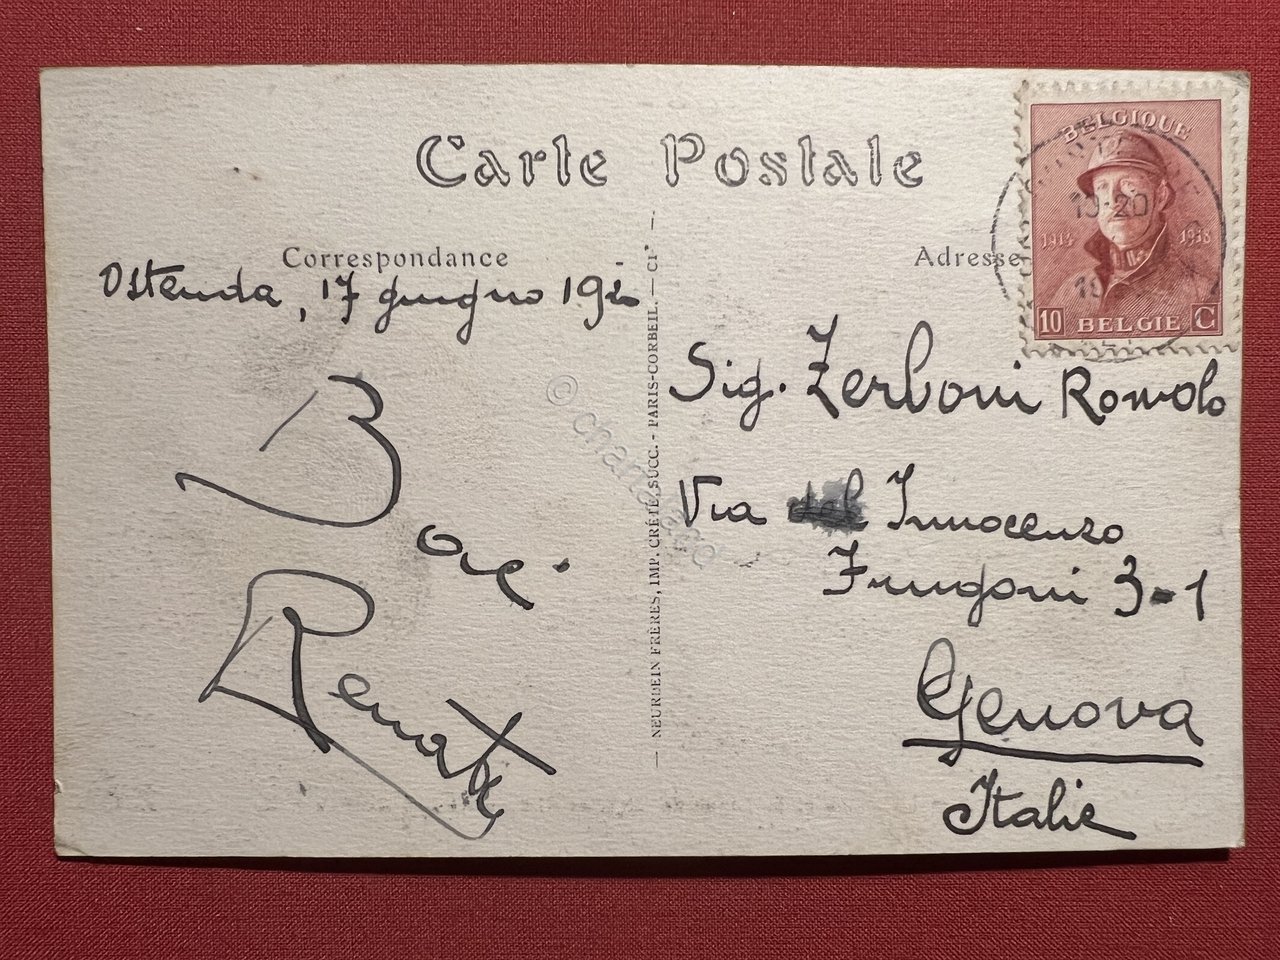 Carte Postale
Correspondance
Adresse
Ostenda, 17 giugno 192
Baci
Renato
Sig. Zerboni Romolo
Via Innocenzo
Frugoni 3-1
Genova
Italie
BELGIQUE
1914 1918
10-20
19
10 BELGIE C
NEURDEIN FRÈRES, IMP. CRÉTÉ, SUCC. - PARIS-CORBEIL. - CIE